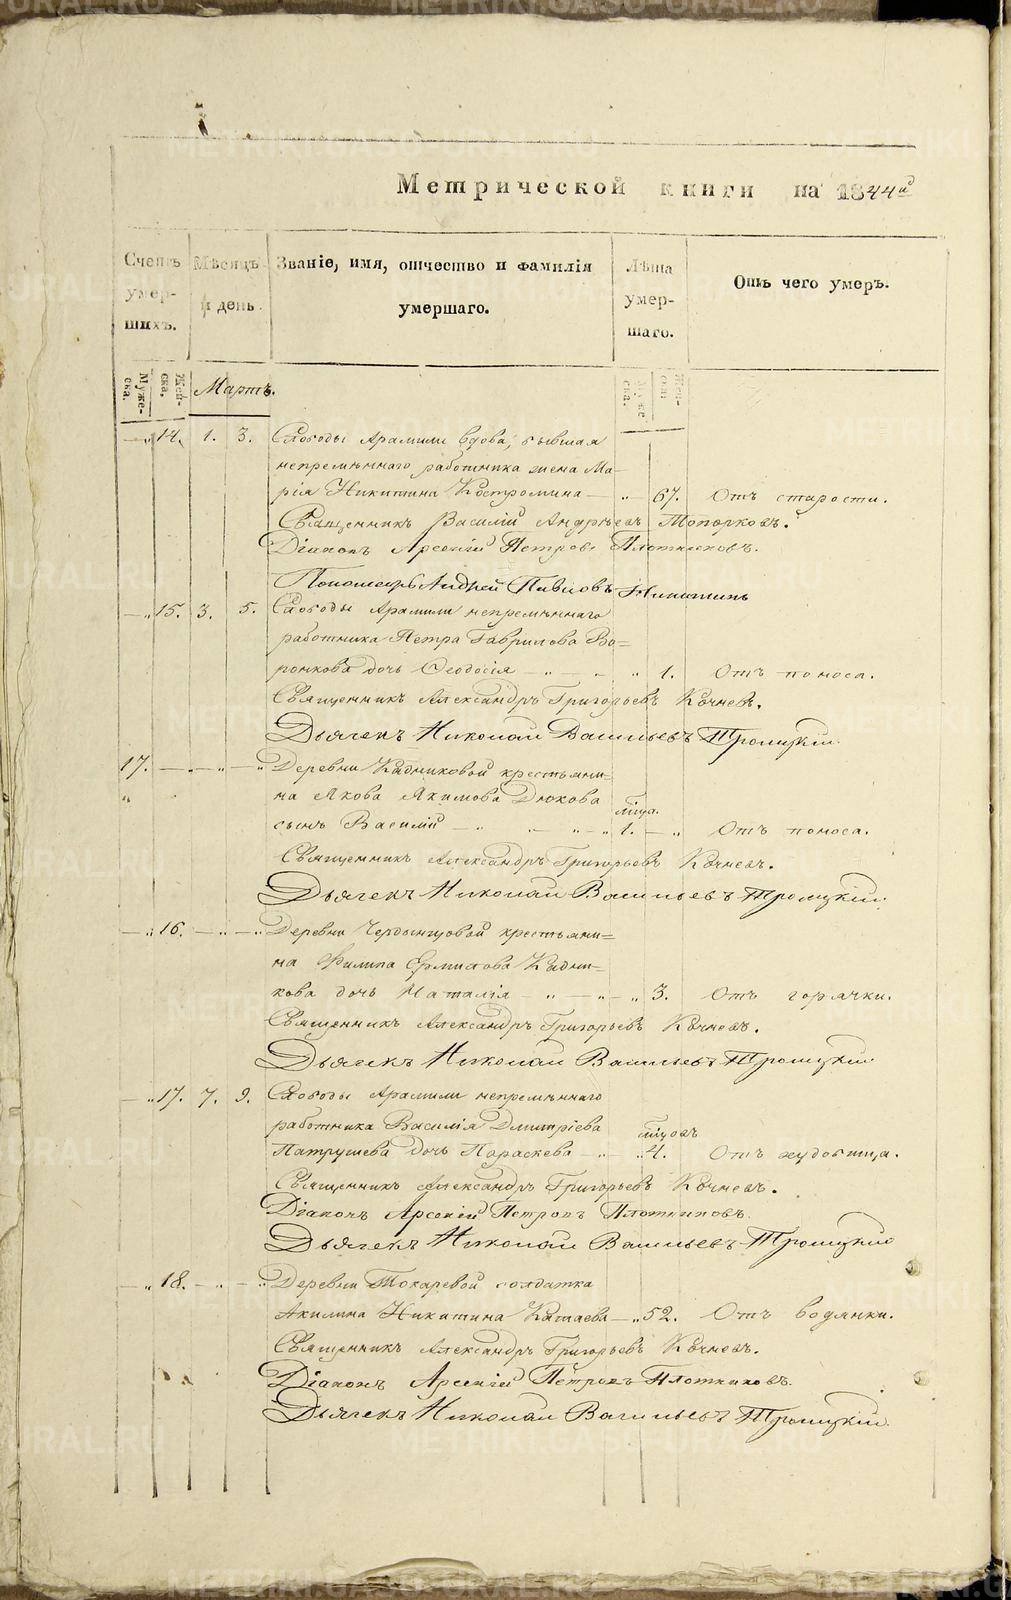 Метрической книги на 1844й
Счетъ умер- шихъ.
Мѣсяцъ и день.
Званіе, имя, отчество и фамилія умершаго.
Лѣта умер- шаго.
Отъ чего умеръ.
Муже- ска.
Жен- ска.
Мартъ.
Муже- ска.
Жен- ска.
— „ 14. 1. 3. Слободы Арамили вдова, бывшая
непремѣннаго работника жена Ма-
рія Никитина Костромина — „ 67. Отъ старости.
Священникъ Василій Андреевъ Топорковъ.
Діаконъ Арсеній Петровъ Плотниковъ.
Пономарь Андрей Павловъ Никитинъ
— „ 15. 3. 5. Слободы Арамили непремѣннаго
работника Петра Гаврилова Во=
ронкова дочь Ѳеодосія — „ — „ „ 1. Отъ поноса.
Священникъ Александръ Григорьевъ Кочневъ.
Дьячекъ Николай Васильевъ Троицкій.
17. — „ — „ Деревни Кадниковой крестьяни=
„ на Якова Якимова Дюкова мѣца.
сынъ Василій — „ — „ — „ 1. — „ Отъ поноса.
Священникъ Александръ Григорьевъ Кочневъ.
Дьячекъ Николай Васильевъ Троицкій.
— „ 16. — „ — „ Деревни Чердынцовой крестьяни=
на Филипа Ермилова Кадни=
кова дочь Наталія — „ — „ — „ 3. Отъ горячки.
Священникъ Александръ Григорьевъ Кочневъ.
Дьячекъ Николай Васильевъ Троицкій
— „ 17. 7. 9. Слободы Арамили непремѣннаго
работника Василія Дмитріева мѣцовъ
Патрушева дочь Параскева — „ „ 4. Отъ худобища.
Священникъ Александръ Григорьевъ Кочневъ.
Діаконъ Арсеній Петровъ Плотниковъ.
Дьячекъ Николай Васильевъ Троицкій
— „ 18. — „ — „ Деревни Токаревой солдатка
Акилина Никитина Катаева — „ 52. Отъ водянки.
Священникъ Александръ Григорьевъ Кочневъ.
Діаконъ Арсеній Петровъ Плотниковъ.
Дьячекъ Николай Васильевъ Троицкій.
METRIKI.GASO-URAL.RU